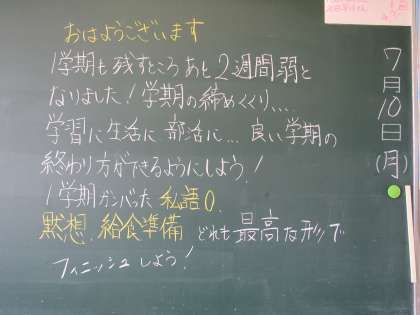 おはようございます
1学期も残すところあと2週間弱と
なりました!学期の締めくくり、、、
学習に生活に部活に…良い学期の
終わり方ができるようにしよう!
1学期ガンバった私語0、
黙想、給食準備 どれも最高な形で
フィニッシュしよう!
7月10日(月)